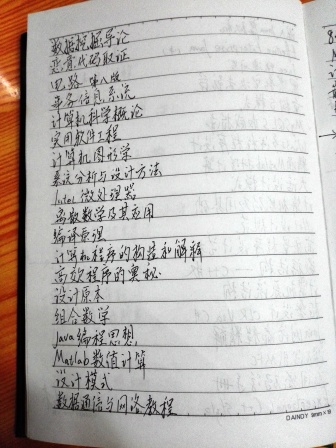 数据挖掘导论
恶意代码取证
电路 第八版
业务信息系统
计算机科学概论
实用软件工程
计算机图形学
系统分析与设计方法
Intel 微处理器
离散数学及其应用
编译原理
计算机程序的构造和解释
高效程序的奥秘
设计原本
组合数学
Java编程思想
Matlab数值计算
设计模式
数据通信与网络教程
DAINDY 9mm×19